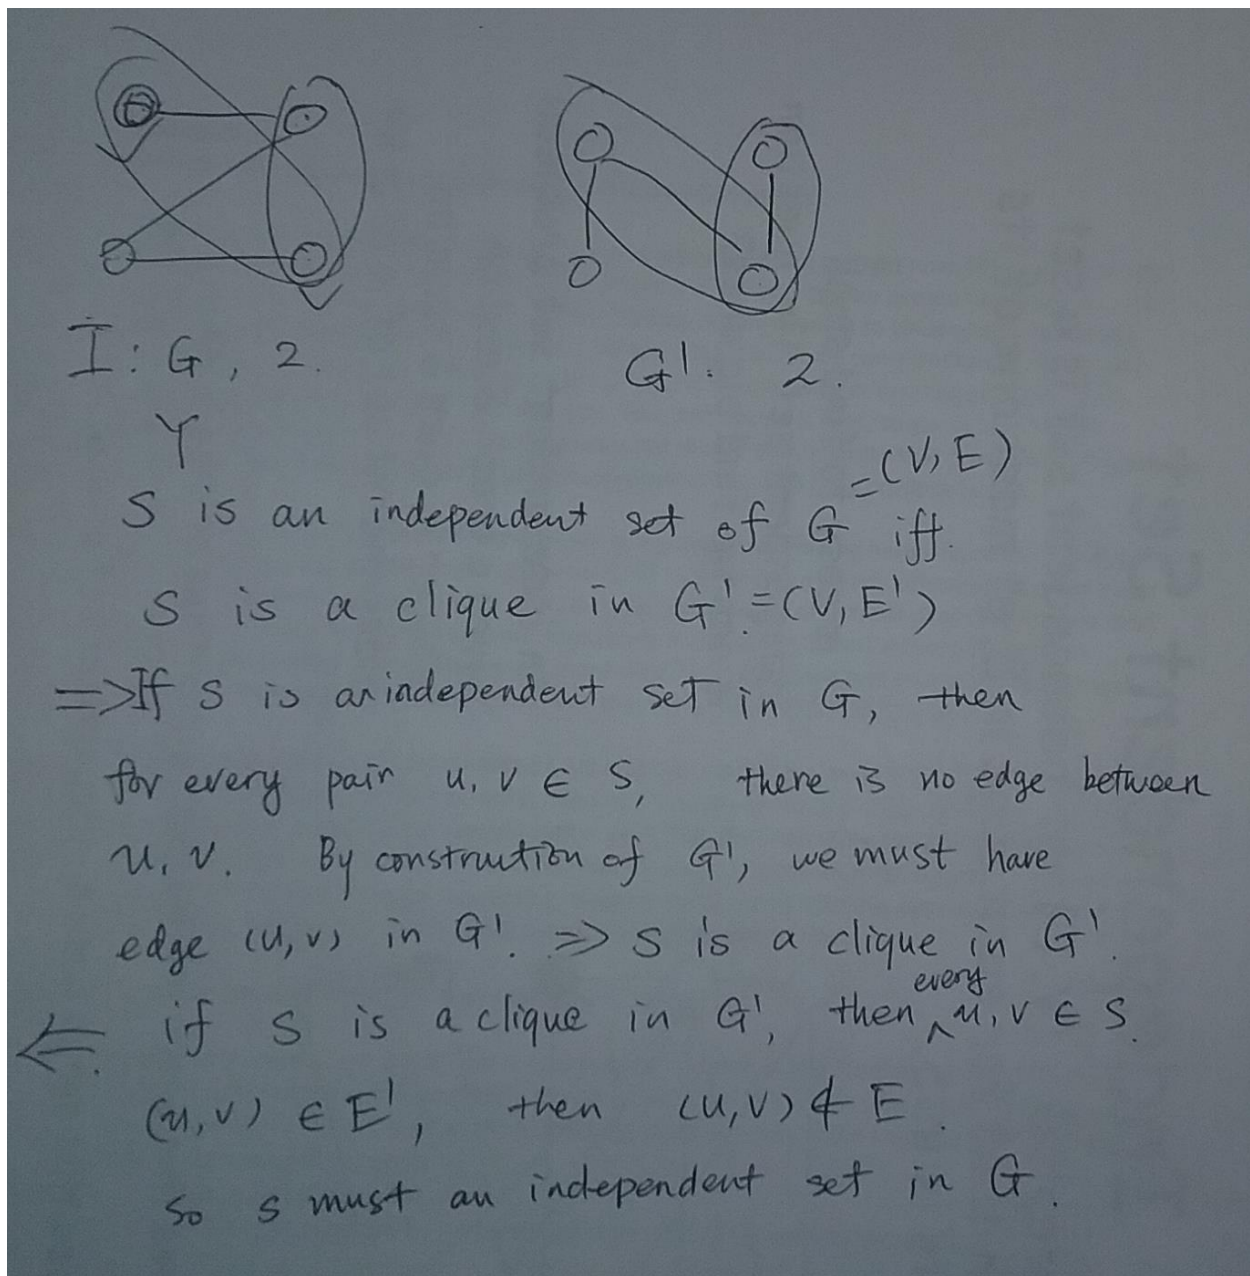 I: G, 2.
G'. 2.
Y
= (V, E)
S is an independent set of G iff.
S is a clique in G'. = (V, E')
=> If S is an independent set in G, then
for every pair u, v ∈ S, there is no edge between
u, v. By construction of G', we must have
edge (u, v) in G'. => S is a clique in G'.
every
<= if S is a clique in G', then ^ u, v ∈ S.
(u, v) ∈ E', then (u, v) ∉ E.
So S must an independent set in G.